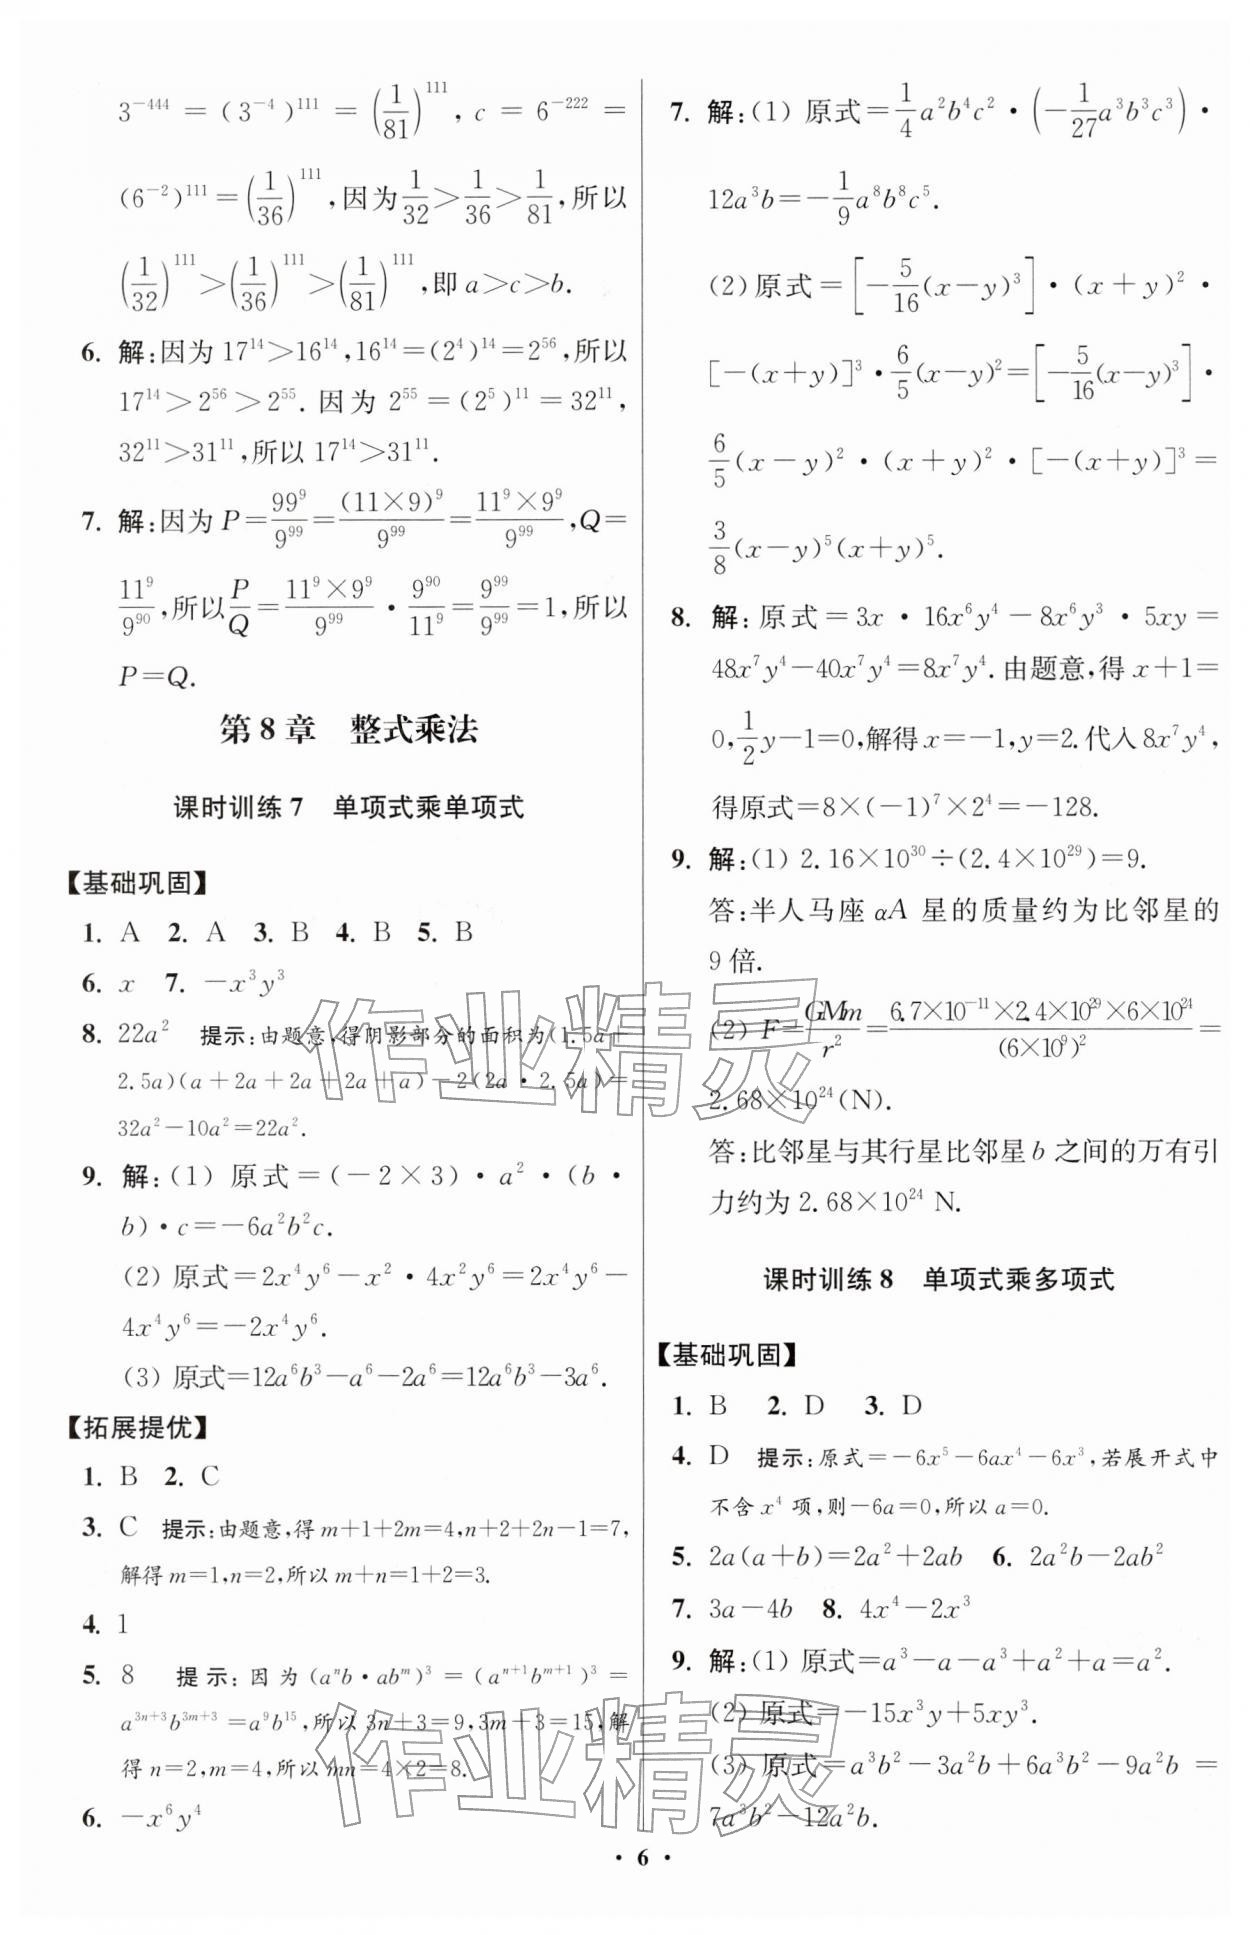 3⁻⁴⁴⁴ = (3⁻⁴)¹¹¹ = (1/81)¹¹¹, c = 6⁻²²² =
(6⁻²)¹¹¹=(1/36)¹¹¹,因为1/32>1/36>1/81,所以
(1/32)¹¹¹>(1/36)¹¹¹>(1/81)¹¹¹,即 a>c>b.
6. 解:因为 17¹⁴>16¹⁴,16¹⁴=(2⁴)¹⁴=2⁵⁶,所以
17¹⁴>2⁵⁶>2⁵⁵. 因为 2⁵⁵=(2⁵)¹¹=32¹¹,
32¹¹>31¹¹,所以 17¹⁴>31¹¹.
7. 解:因为 P=99⁹/9⁹⁹=(11×9)⁹/9⁹⁹=11⁹×9⁹/9⁹⁹,Q=
11⁹/9⁹⁰,所以P/Q=11⁹×9⁹/9⁹⁹·9⁹⁰/11⁹=9⁹⁹/9⁹⁹=1,所以
P=Q.
第 8 章 整式乘法
课时训练 7 单项式乘单项式
【基础巩固】
1. A 2. A 3. B 4. B 5. B
6. x 7. -x³y³
8. 22a² 提示:由题意,得阴影部分的面积为(1.5a+
2.5a)(a+2a+2a+2a+a)-2(2a·2.5a)=
32a²-10a²=22a².
9. 解:(1) 原式=(-2×3)·a²·(b·
b)·c=-6a²b²c.
(2) 原式=2x⁴y⁶-x²·4x²y⁶=2x⁴y⁶-
4x⁴y⁶=-2x⁴y⁶.
(3) 原式=12a⁶b³-a⁶-2a⁶=12a⁶b³-3a⁶.
【拓展提优】
1. B 2. C
3. C 提示:由题意,得 m+1+2m=4,n+2+2n-1=7,
解得 m=1,n=2,所以 m+n=1+2=3.
4. 1
5. 8 提示:因为 (aⁿb·abᵐ)³=(aⁿ⁺¹bᵐ⁺¹)³=
a³ⁿ⁺³b³ᵐ⁺³=a⁹b¹⁵,所以 3n+3=9,3m+3=15,解
得 n=2,m=4,所以 mn=4×2=8.
6. -x⁶y⁴
7. 解:(1) 原式=1/4a²b⁴c²·(-1/27a³b³c³)·
12a³b=-1/9a⁸b⁸c⁵.
(2) 原式=[-5/16(x-y)³]·(x+y)²·
[-(x+y)]³·6/5(x-y)²=[-5/16(x-y)³]·
6/5(x-y)²·(x+y)²·[-(x+y)]³=
3/8(x-y)⁵(x+y)⁵.
8. 解:原式=3x·16x⁶y⁴-8x⁶y³·5xy=
48x⁷y⁴-40x⁷y⁴=8x⁷y⁴.由题意,得 x+1=
0,1/2y-1=0,解得 x=-1,y=2.代入 8x⁷y⁴,
得原式=8×(-1)⁷×2⁴=-128.
9. 解:(1) 2.16×10³⁰÷(2.4×10²⁹)=9.
答:半人马座 αA 星的质量约为比邻星的
9 倍.
(2) F=GMm/r²=6.7×10⁻¹¹×2.4×10²⁹×6×10²⁴/(6×10⁹)²=
2.68×10²⁴(N).
答:比邻星与其行星比邻星 b 之间的万有引
力约为 2.68×10²⁴ N.
课时训练 8 单项式乘多项式
【基础巩固】
1. B 2. D 3. D
4. D 提示:原式=-6x⁵-6ax⁴-6x³,若展开式中
不含 x⁴ 项,则-6a=0,所以 a=0.
5. 2a(a+b)=2a²+2ab 6. 2a²b-2ab²
7. 3a-4b 8. 4x⁴-2x³
9. 解:(1) 原式=a³-a-a³+a²+a=a².
(2) 原式=-15x³y+5xy³.
(3) 原式=a³b²-3a²b+6a³b²-9a²b=
7a³b²-12a²b.
作业精灵
作业精灵
· 6 ·